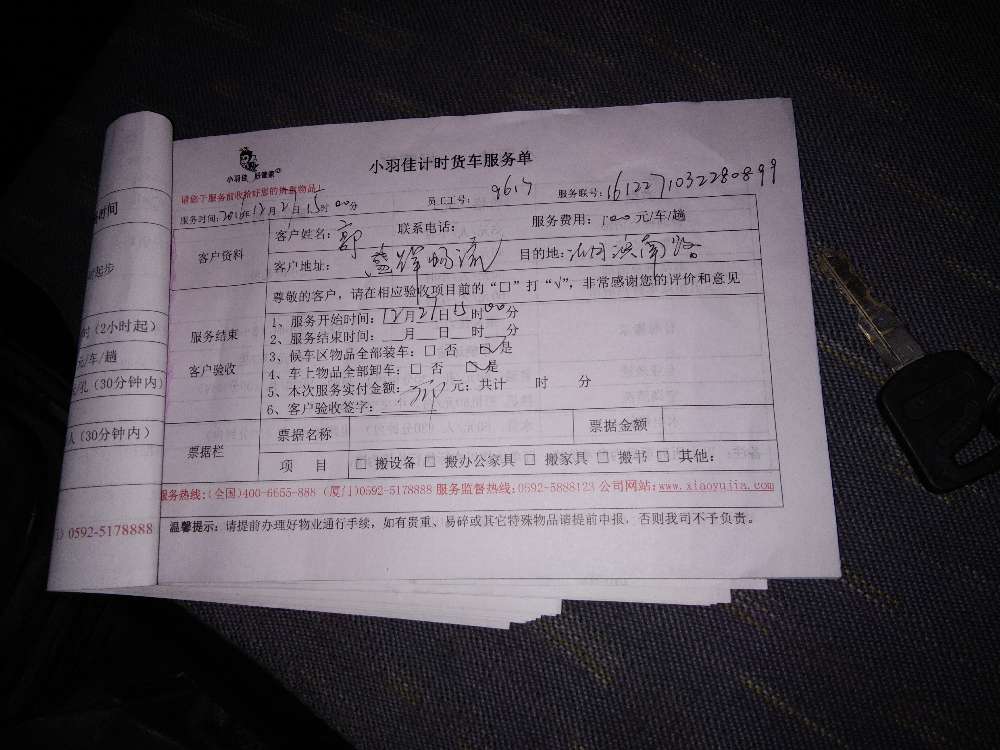 小羽佳 好管家
小羽佳计时货车服务单
请您于服务前收拾好您的贵重物品!
服务时间:2016年12月27日15时00分 员工工号: 9617 服务联号: 1612271032280899
客户资料
客户姓名: 郭 联系电话: 服务费用: 100元/车/趟
客户地址: 盛辉物流 目的地:
尊敬的客户,请在相应验收项目前的“□”打“√”,非常感谢您的评价和意见
服务结束
客户验收
1、服务开始时间:12月27日15时00分
2、服务结束时间: 月 日 时 分
3、候车区物品全部装车:□ 否 ☑是
4、车上物品全部卸车:□ 否 ☑是
5、本次服务实付金额: 元;共计 时 分
6、客户验收签字:
票据栏
票据名称 票据金额
项 目 □ 搬设备 □ 搬办公家具 □ 搬家具 □ 搬书 □ 其他:
服务热线:(全国)400-6655-888 (厦门)0592-5178888 服务监督热线:0592-5888123 公司网站:www.xiaoyujia.com
温馨提示:请提前办理好物业通行手续,如有贵重、易碎或其它特殊物品请提前申报,否则我司不予负责。
时间
起步
时(2小时起)
元/车/趟
(30分钟内)
人(30分钟内)
0592-5178888